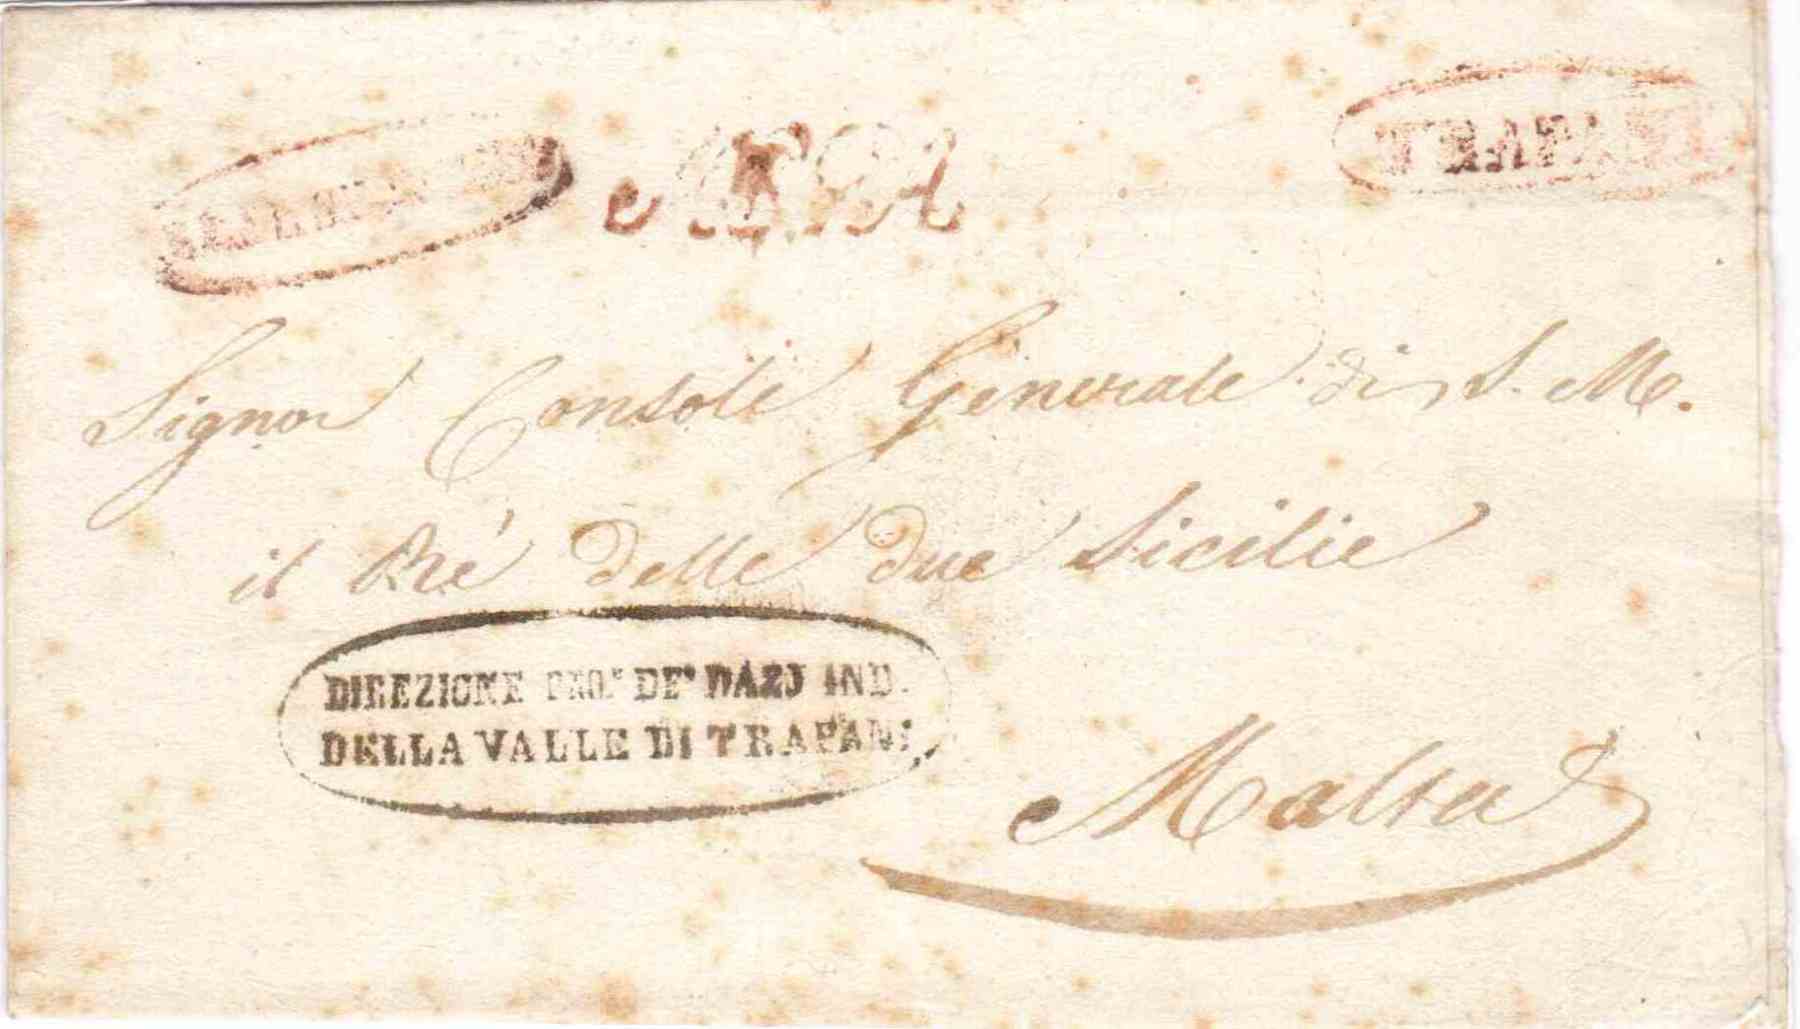 TRAPANI
Signor Console Generale di S. M.
il Ré delle due Sicilie
DIREZIONE PRO.^e DE' DAZJ IND.
DELLA VALLE DI TRAPANI
Malta